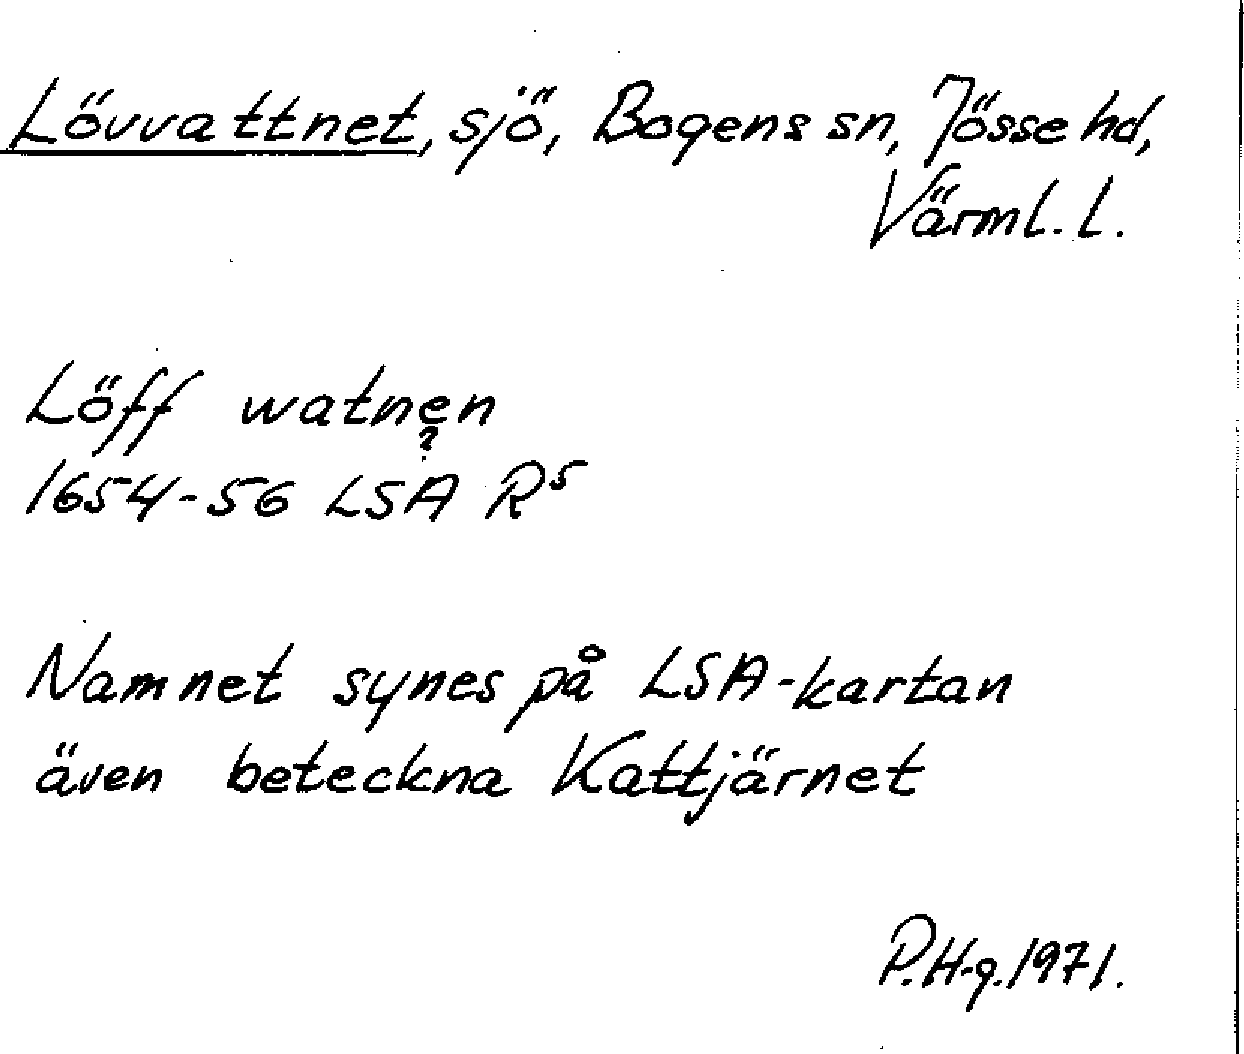 Lövvattnet, sjö, Bogens sn, Jösse hd,
Värml. l.
Löff watnen
?
1654-56 LSA R5
Namnet synes på LSA-kartan
även beteckna Kattjärnet
P.H-g.1971.